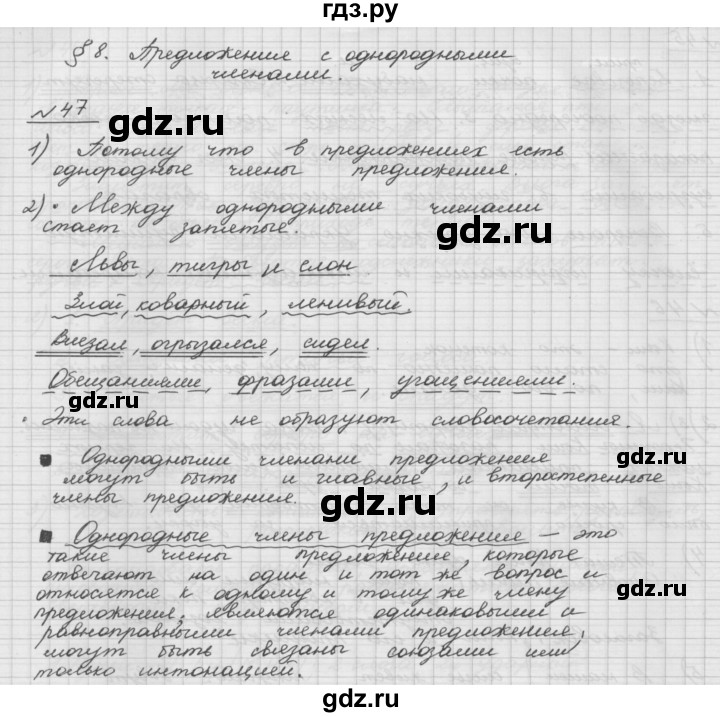 гдз.ру
§ 8. Предложения с однородными
членами.
№47
gdz.ru
1) Потому что в предложениях есть
однородные члены предложения.
2) • Между однородными членами
стает запятые.
gdz.ru
Львы, тигры и слон.
Злой, коварный, ленивый.
Влезал, огрызался, сидел.
Обещаниями, фразами, угощениями.
gdz.ru
• Эти слова не образуют словосочетания.
■ Однородными членами предложения
gdz.ru
могут быть и главные, и второстепенные
члены предложения.
gdz.ru
■ Однородные члены предложения – это
такие члены предложения, которые
отвечают на один и тот же вопрос и
gdz.ru
относятся к одному и тому же члену
предложения, являются одинаковыми и
равноправными членами предложения,
могут быть связаны союзами или
только интонацией.
gdz.ru